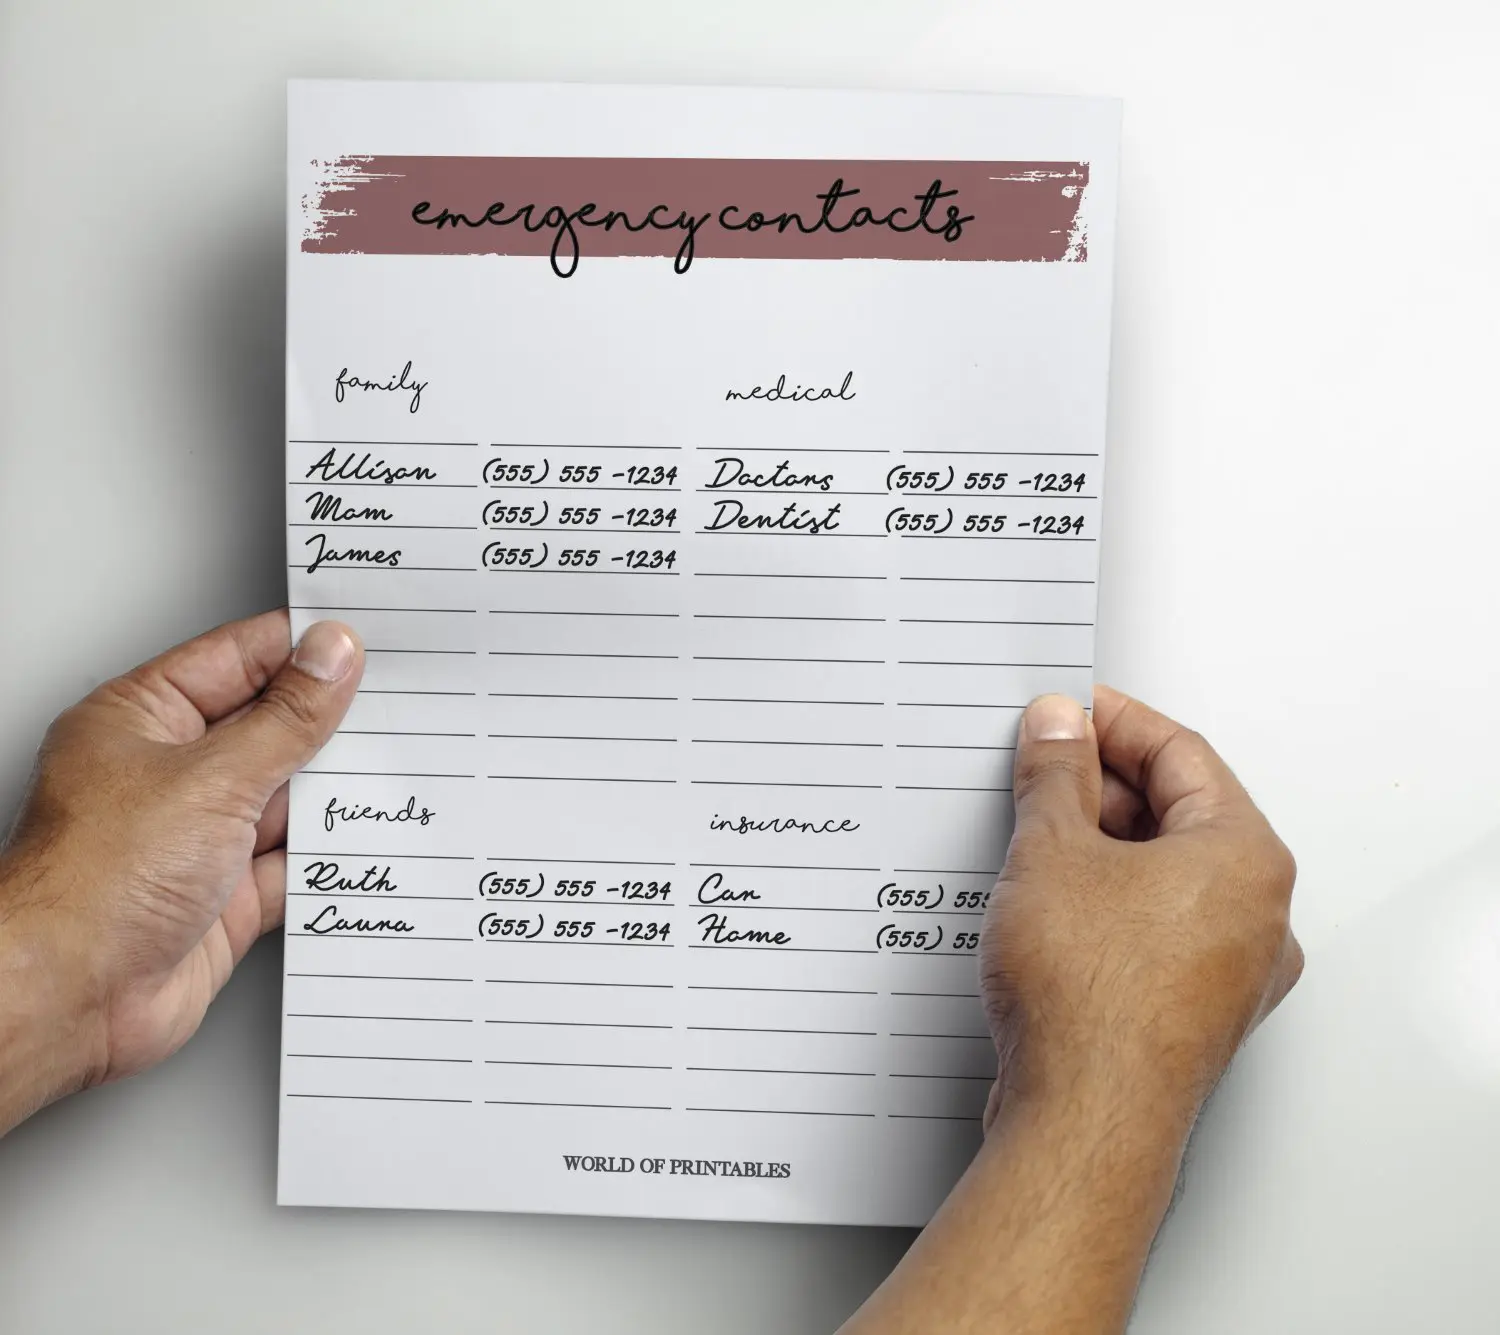 emergency contacts
family
Allison (555) 555 -1234
Mom (555) 555 -1234
James (555) 555 -1234
medical
Doctors (555) 555 -1234
Dentist (555) 555 -1234
friends
Ruth (555) 555 -1234
Laura (555) 555 -1234
insurance
Car (555) 555
Home (555) 55
WORLD OF PRINTABLES